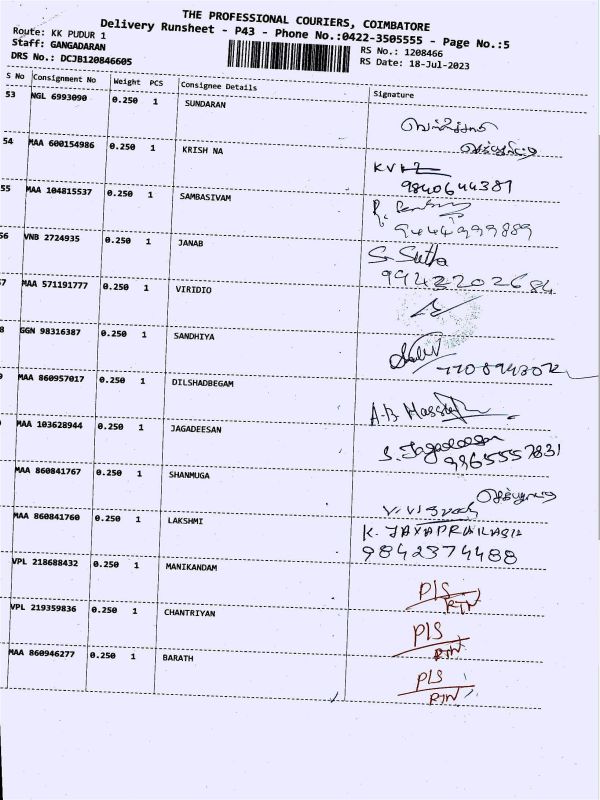 THE PROFESSIONAL COURIERS, COIMBATORE
Delivery Runsheet - P43 - Phone No.:0422-3505555 - Page No.:5
Route: KK PUDUR 1
Staff: GANGADARAN
DRS No.: DCJB120846605
RS No.: 1208466
RS Date: 18-Jul-2023
S No Consignment No Weight PCS Consignee Details Signature
53 NGL 6993090 0.250 1 SUNDARAN
54 MAA 600154986 0.250 1 KRISH NA
9840644381
55 MAA 104815537 0.250 1 SAMBASIVAM
9444999889
56 VNB 2724935 0.250 1 JANAB S. Sutha
9942202684
7 MAA 571191777 0.250 1 VIRIDIO
8 GGN 98316387 0.250 1 SANDHIYA
MAA 860957017 0.250 1 DILSHADBEGAM A.B
MAA 103628944 0.250 1 JAGADEESAN S. Jagadeesan
9865557831
MAA 860841767 0.250 1 SHANMUGA
MAA 860841760 0.250 1 LAKSHMI K. JAYAPRAKASH
9842374488
VPL 218688432 0.250 1 MANIKANDAM P/S
RTN
VPL 219359836 0.250 1 CHANTRIYAN P/S
RTN
MAA 860946277 0.250 1 BARATH P/S
RTN